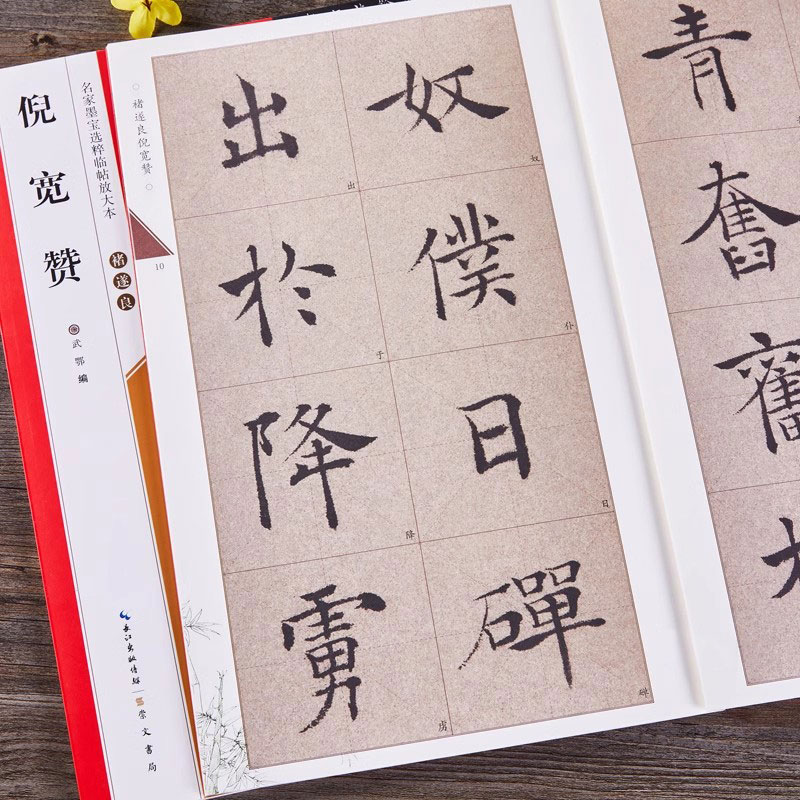 倪宽赞
名家墨宝选粹临帖放大本
褚遂良
武鄂编
长江出版传媒
崇文书局
褚遂良倪宽赞
10
奴
奴
僕
仆
日
日
磾
出
出
於
于
降
降
虜
虏
青
奮